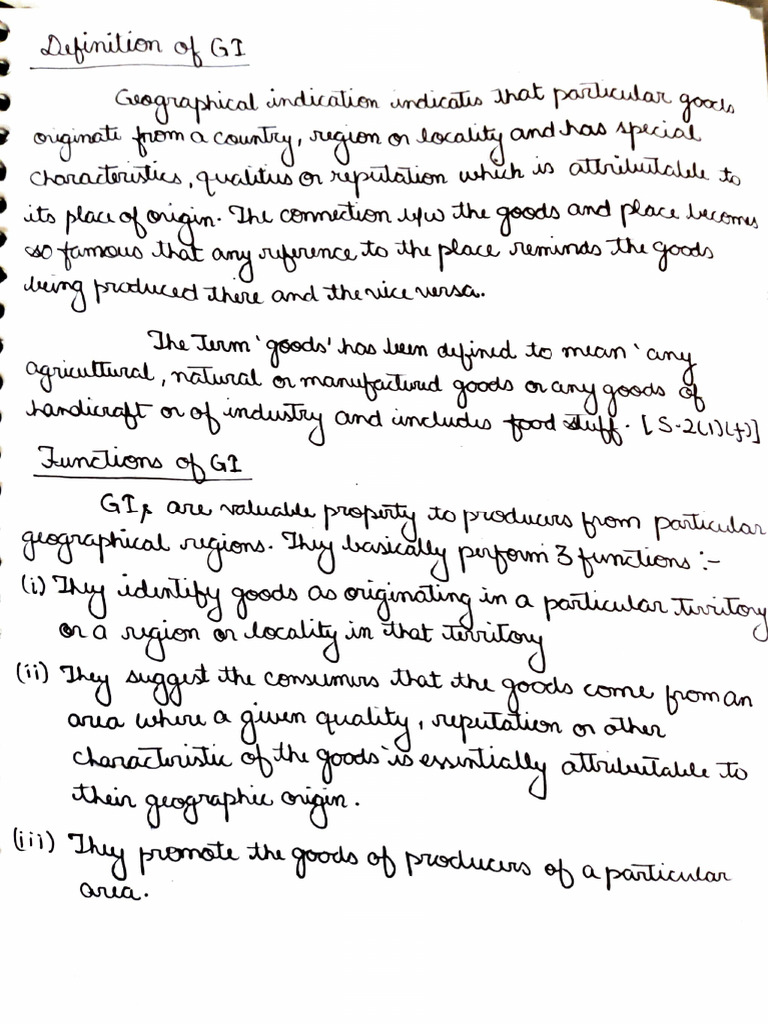 Definition of GI
Geographical indication indicates that particular goods
originate from a country, region or locality and has special
characteristics, qualities or reputation which is attributable to
its place of origin. The connection b/w the goods and place becomes
so famous that any reference to the place reminds the goods
being produced there and the vice versa.
The Term 'goods' has been defined to mean 'any
agricultural, natural or manufactured goods or any goods of
handicraft or of industry and includes food stuff. [S-2(1)(f)]
Functions of GI
GIs are valuable property to producers from particular
geographical regions. They basically perform 3 functions :-
(i) They identify goods as originating in a particular territory
or a region or locality in that territory
(ii) They suggest the consumers that the goods come from an
area where a given quality, reputation or other
characteristic of the goods is essentially attributable to
their geographic origin.
(iii) They promote the goods of producers of a particular
area.